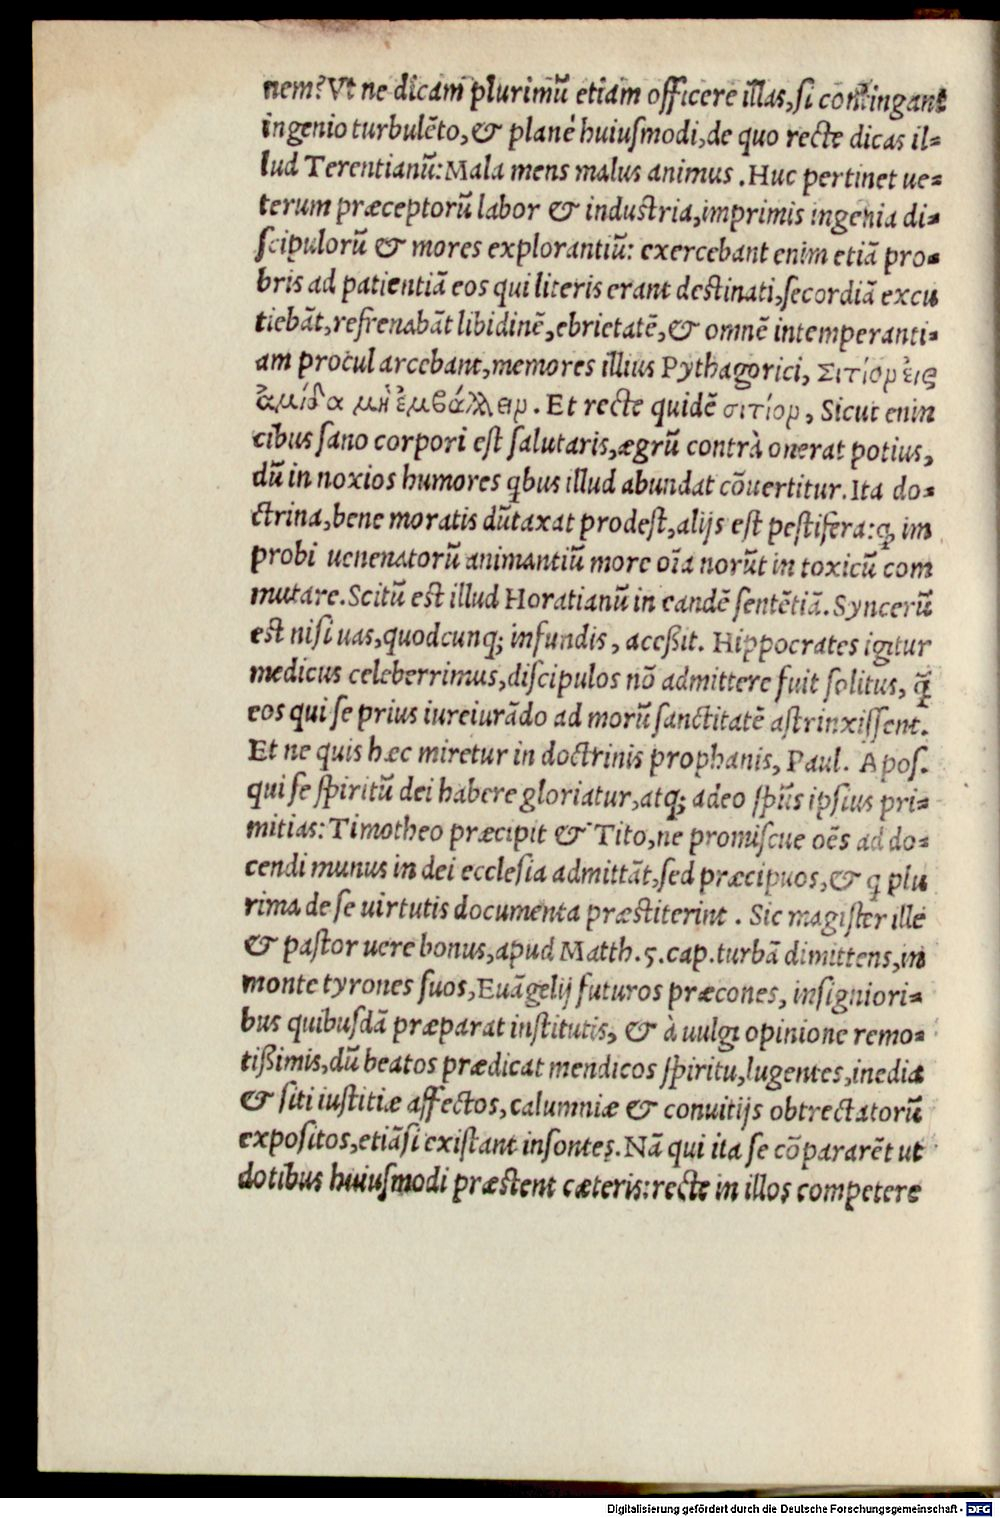 nem? Vt ne dicam plurimū etiam officere illas, si contingant
ingenio turbulēto, & planè huiusmodi, de quo recte dicas il-
lud Terentianū: Mala mens malus animus. Huc pertinet ue-
terum præceptorū labor & industria, imprimis ingenia di-
scipulorū & mores explorantiū: exercebant enim etiā pro-
bris ad patientiā eos qui literis erant destinati, secordiā excu
tiebāt, refrenabāt libidinē, ebrietatē, & omnē intemperanti-
am procul arcebant, memores illius Pythagorici, Σιτίον εἰς
ἀμίδα μὴ ἐμβάλλειν. Et recte quidē σιτίον, Sicut enin
cibus sano corpori est salutaris, ægrū contrà onerat potius,
dū in noxios humores qbus illud abundat cōuertitur. Ita do-
ctrina, bene moratis dūtaxat prodest, alijs est pestifera: q, im
probi uenenatorū animantiū more oīa norūt in toxicū com
mutare. Scitū est illud Horatianū in eandē sentētiā. Syncerū
est nisi uas, quodcunq; infundis, aceßit. Hippocrates igitur
medicus celeberrimus, discipulos nō admittere fuit solitus, q̄
eos qui se prius iureiurādo ad morū sanctitatē astrinxissent.
Et ne quis hæc miretur in doctrinis prophanis, Paul. Apos.
qui se spiritū dei habere gloriatur, atq; adeo spūs ipsius pri-
mitias: Timotheo præcipit & Tito, ne promiscue oēs ad do-
cendi munus in dei ecclesia admittāt, sed præcipuos, & q plu
rima de se uirtutis documenta præstiterint. Sic magister ille
& pastor uere bonus, apud Matth. 5. cap. turbā dimittens, in
monte tyrones suos, Euāgelij futuros præcones, insigniori-
bus quibusdā præparat institutis, & à uulgi opinione remo-
tißimis, dū beatos prædicat mendicos spiritu, lugentes, inedia
& siti iustitiæ affectos, calumniæ & conuitijs obtrectatorū
expositos, etiāsi existant insontes. Nā qui ita se cōpararēt ut
dotibus huiusmodi præstent cæteris: recte in illos competere
Digitalisierung gefördert durch die Deutsche Forschungsgemeinschaft - DFG